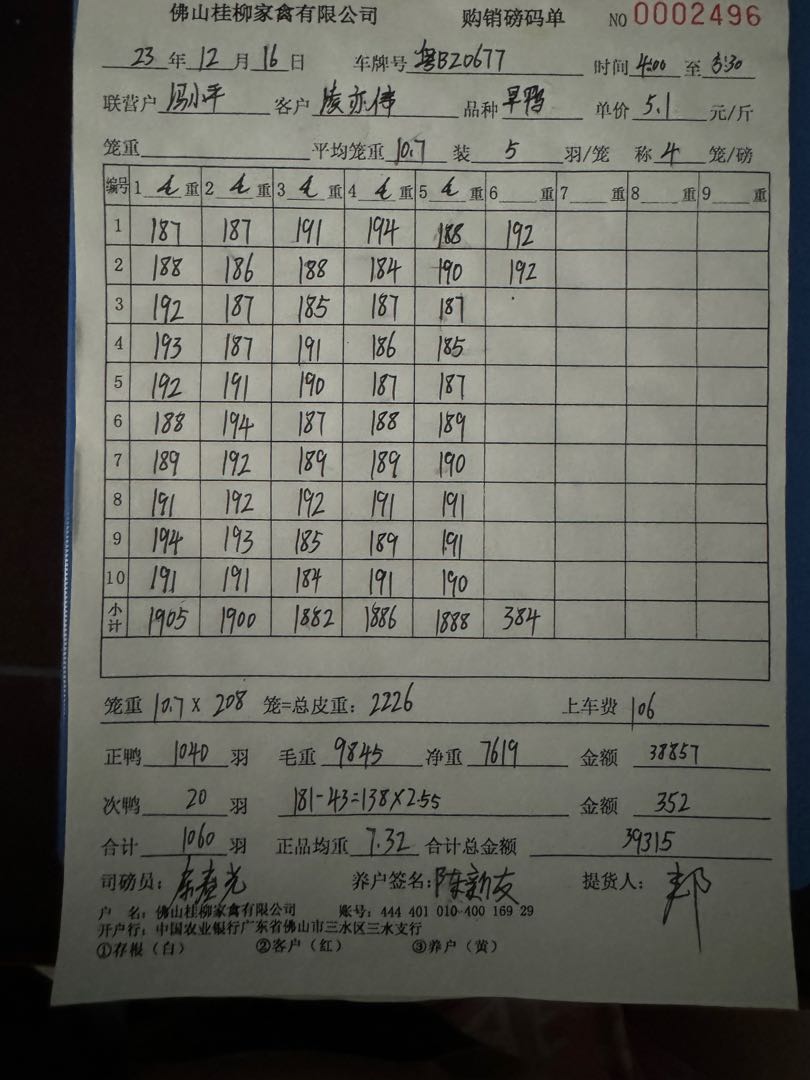 佛山桂柳家禽有限公司 购销磅码单 NO 0002496
23 年 12 月 16 日 车牌号 粤BZ0677 时间 4:00 至 5:30
联营户 冯小平 客户 凌亦伟 品种 旱鸭 单价 5.1 元/斤
笼重 平均笼重 10.7 装 5 羽/笼 称 4 笼/磅
编号 1 毛 重 2 毛 重 3 毛 重 4 毛 重 5 毛 重 6 重 7 重 8 重 9 重
1 187 187 191 194 188 192
2 188 186 188 184 190 192
3 192 187 185 187 187
4 193 187 191 186 185
5 192 191 190 187 187
6 188 194 187 188 189
7 189 192 189 189 190
8 191 192 192 191 191
9 194 193 185 189 191
10 191 191 184 191 190
小计 1905 1900 1882 1886 1888 384
笼重 10.7 X 208 笼=总皮重: 2226 上车费 106
正鸭 1040 羽 毛重 9845 净重 7619 金额 38857
次鸭 20 羽 181-43=138×2.55 金额 352
合计 1060 羽 正品均重 7.32 合计总金额 39315
司磅员: 养户签名: 陈新友 提货人:
户 名: 佛山桂柳家禽有限公司 账号: 444 401 010 400 169 29
开户行: 中国农业银行广东省佛山市三水区三水支行
①存根（白） ②客户（红） ③养户（黄）